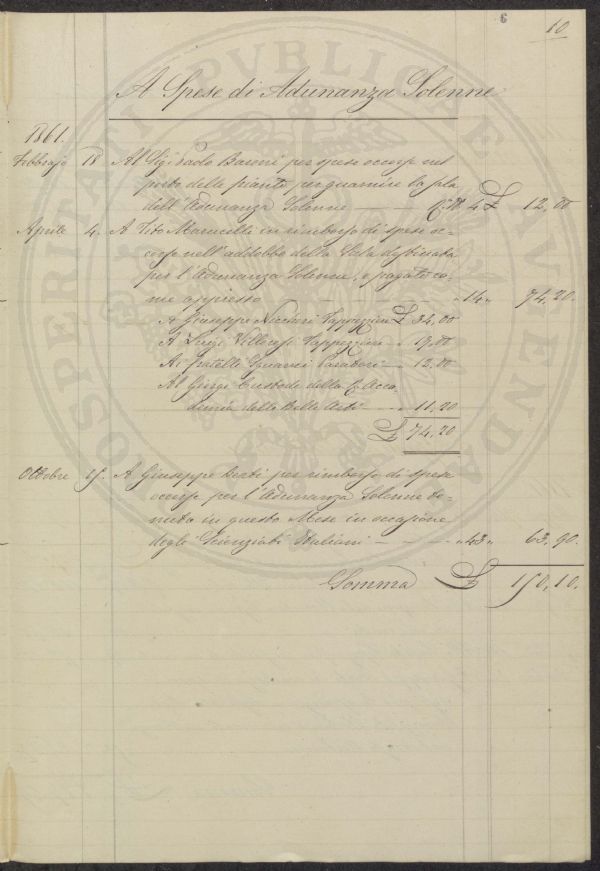 6
10
A Spese di Adunanza Solenne
1861.
Febbrajo 18 Al Sig. Baroni per spese occorse nel
porto delle piante per guarnire la sala
dell'Adunanza Solenne 4 £ 12,00
Aprile 4. A Vito in rimborso di spese oc-
corse nell'addobbo della Sala destinata
per l'Adunanza Solenne, e pagate co-
me appresso " 14 " 74,20.
A Giuseppe Tappezziere £ 32,00
A Luigi Tappezziere " 19,00
Ai fratelli Paratori " 12,00
Al Giorgi Custode della R. Acca
demia delle Belle Arti " 11,20
£ 74,20
Ottobre A Giuseppe per rimborso di spese
occorse per l'Adunanza Solenne te-
nuta in questo Mese in occasione
degli Scienziati Italiani " 43 " 63,90.
Somma £ 150,10.
PROSPERITATI PUBLICAE AUGENDAE